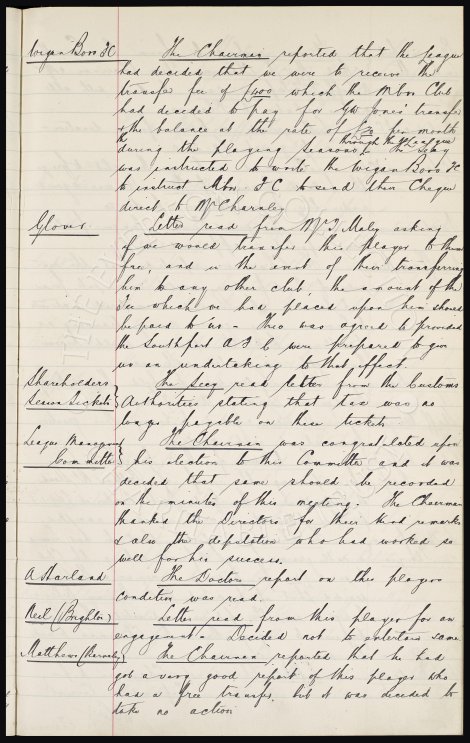 Wigan Boro FC The Chairman reported that the League
had decided that we were to receive the
transfer fee of £400 which the Mbro Club
had decided to pay for GW Jones' transfer
& the balance at the rate of per month
during the playing season through the League The Secy
was instructed to write the Wigan Boro FC
to instruct Mbro FC to send their Cheque
direct to Mr Charnley
Glover. Letter read from Mr J. Maley asking
if we would transfer this player to them
free, and in the event of their transferring
him to any other club, the amount of the
fee which we had placed upon him should
be paid to us - This was agreed to provided
the Southport A F C were prepared to give
us an undertaking to that effect.
Shareholders The Secy read letter from the Customs
Season Tickets } Authorities stating that tax was no
longer payable on these tickets
League Management The Chairman was congratulated upon
Committee } his election to this Committee and it was
decided that same should be recorded
on the minutes of this meeting. The Chairman
thanked the Directors for their kind remarks
& also the deputation who had worked so
well for his success.
A Harland The Doctors report on this players
condition was read.
Neil (Brighton) Letter read from this player for an
engagement - Decided not to entertain same
Matthews (Barnsley) The Chairman reported that he had
got a very good report of this player who
has a free transfer, but it was decided to
take no action